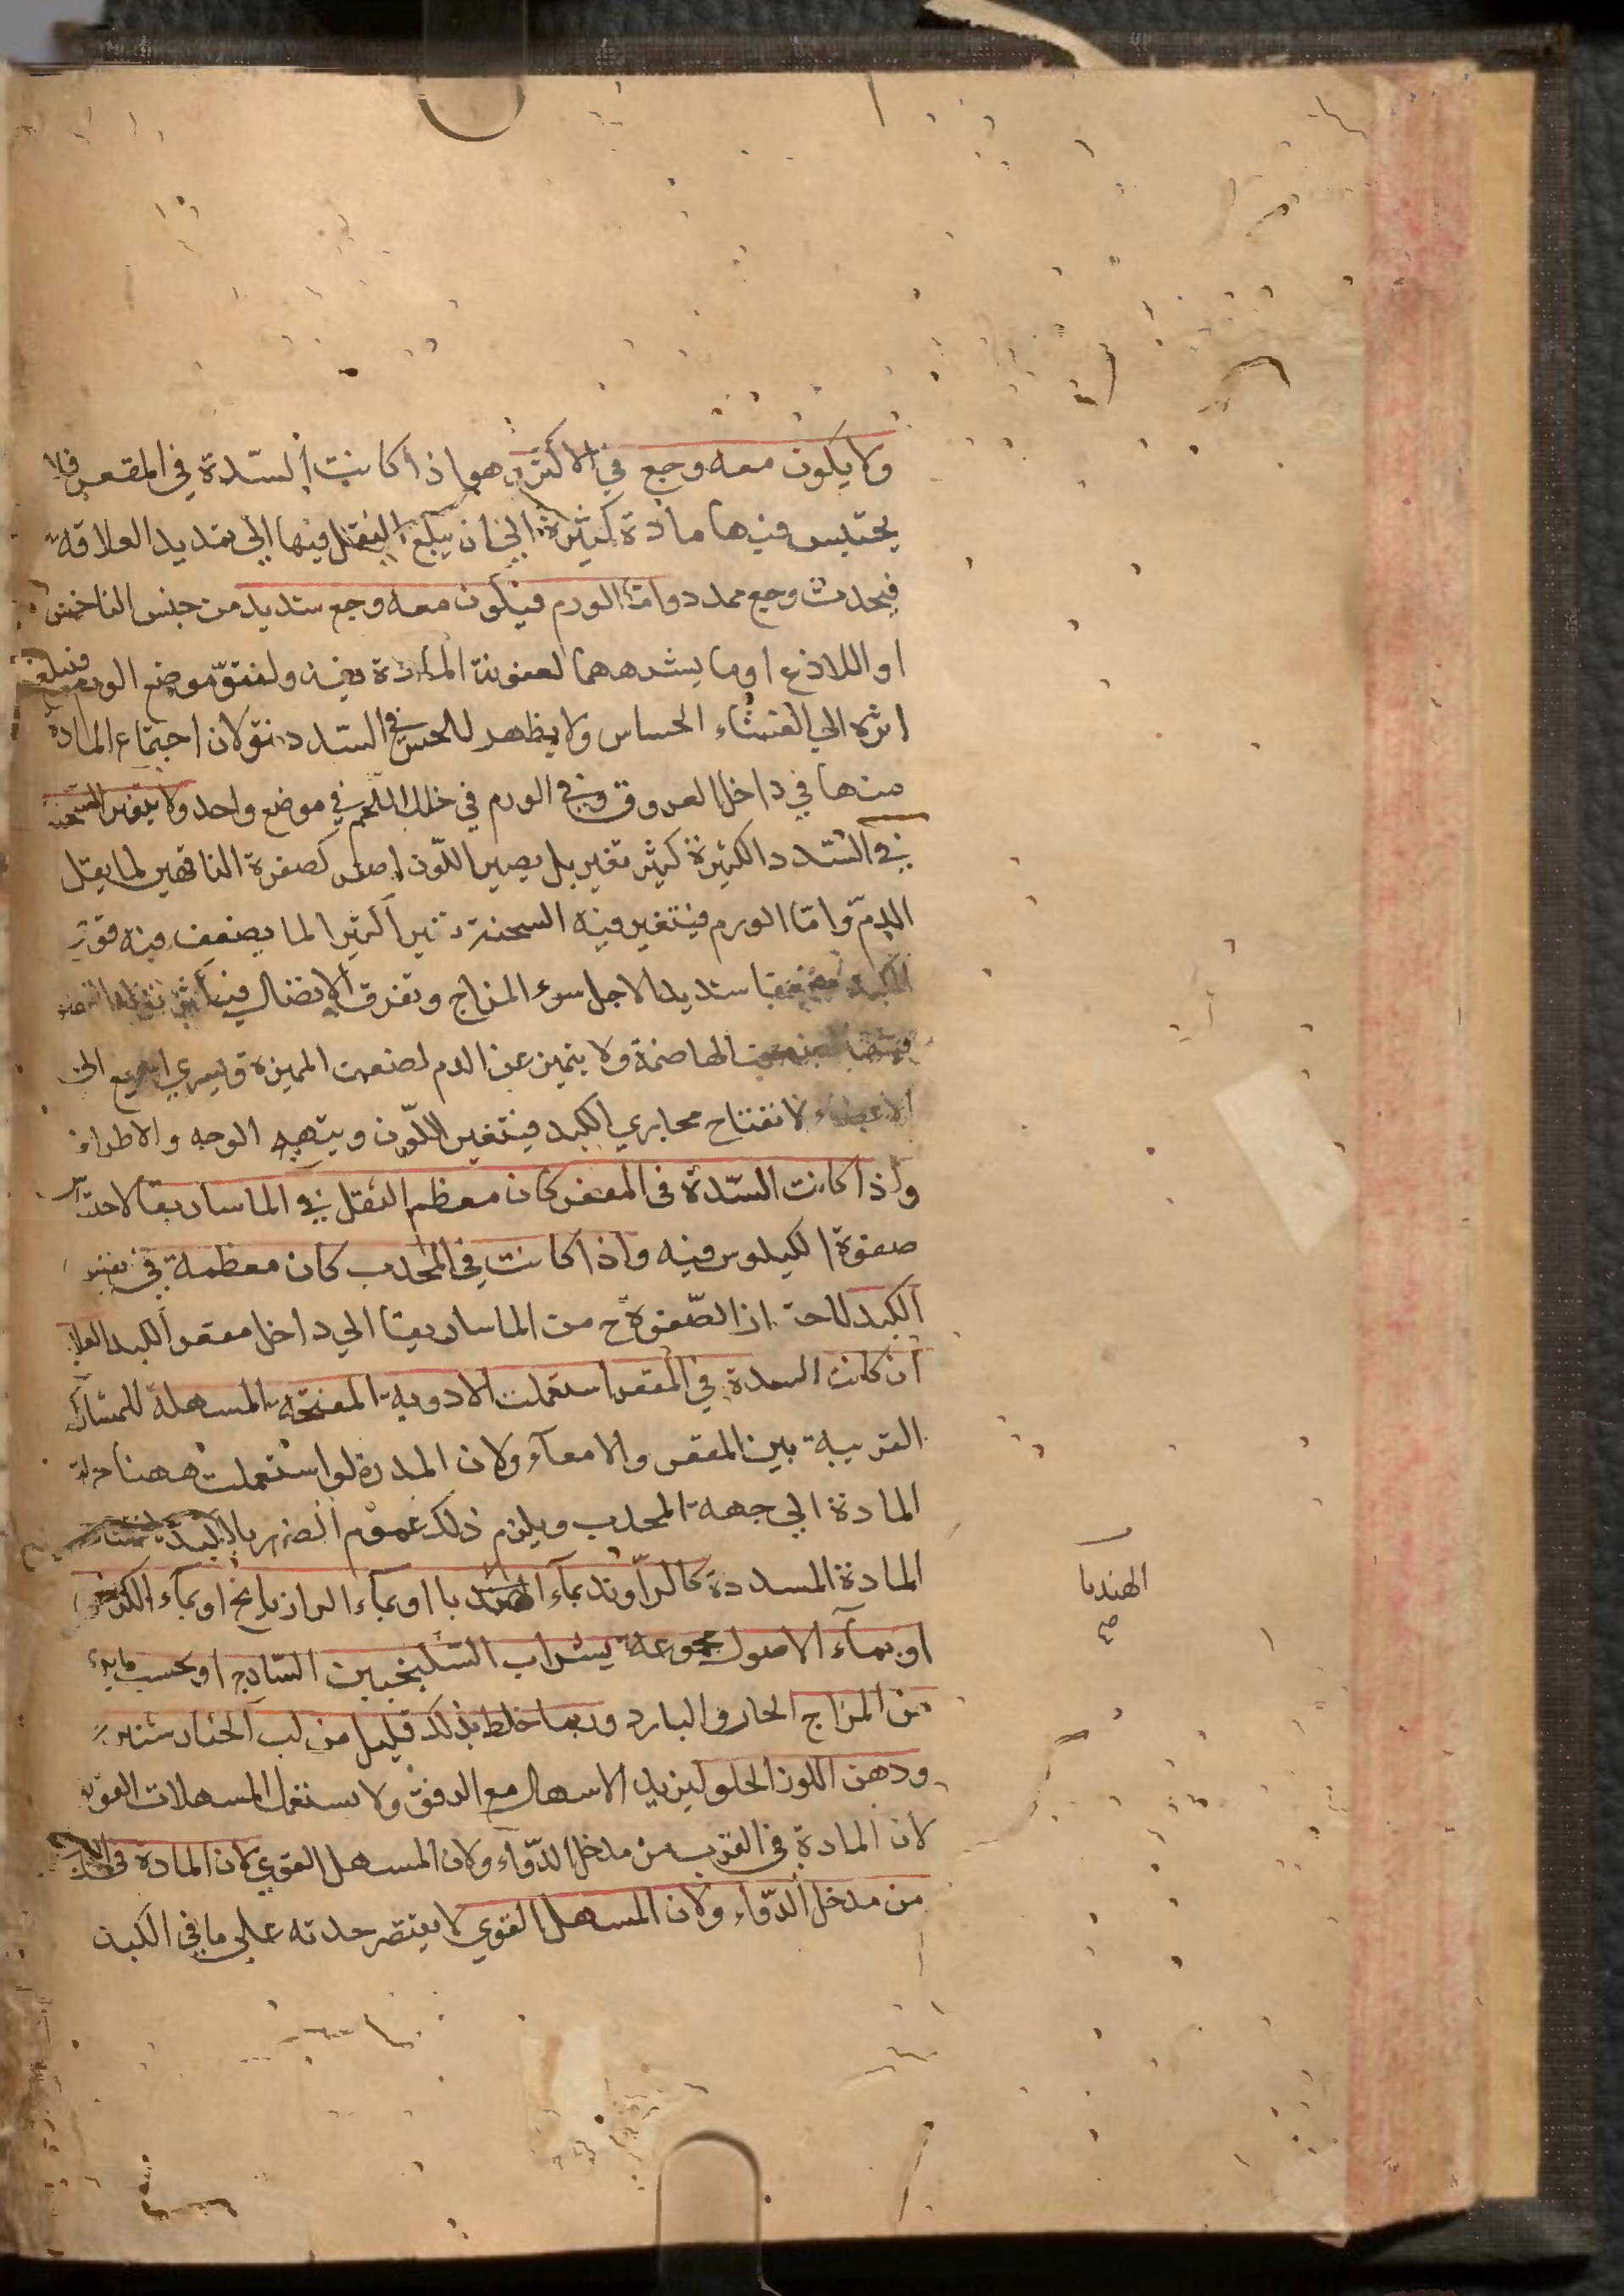 ولا يكون معه وجع في الاكثر وهو اذا كانت السّدة في المقعر فلا
يحتبس فيها مادة كثيرة الي ان يبلغ الثقل فيها الي تمديد العلاقة
فيحدث وجع ممدد وامّا الورم فيكون معه وجع شديد من جنس الناخس
او اللاذع او ما يشبههما لعفونة المادة فيه ولتفرّق موضع الورم فيبلغ
اثره الي الغشاء الحساس ولا يظهر للحس في السّدد نتو لان اجتماع المادة
منها في داخل العروق وفي الورم في خلل اللحم في موضع واحد ولا يتغير السحنة
في السّدد الكثيرة كثير تغير بل يصير اللّون اصفر كصفرة الناقهين لما يقل
الدمّ وامّا الورم فيتغير فيه السحنة تغيرا كثيرا لما يضعف فيه قوة
الكبد ضعفا شديدا لاجل سوء المزاج وتفرق الاتصال
الهاضمة ولا يتميز عن الدم لضعف المميزة ويسري الجميع الي
الاعضاء لانفتاح مجاري الكبد فيتغير اللّون ويتهيج الوجه والاطراف
واذا كانت السّدة في المقعر كان معظم الثقل في الماساريقا لاحتباس
صفوة الكيلوس فيه واذا كانت في المحدب كان معظمه في نفس
الكبد لاحتباس الصّفوة ح من الماساريقا الي داخل مقعر الكبد العلاج
ان كانت السدة في المقعر استعملت الادوية المفتحة المسهلة للمشاركة
القريبة بين المقعر والامعآء ولان المدرة لو استعملت ههنا حركت
المادة الي جهة المحدب ويلزم ذلك عموم الضرر بالكبد
المادة المسددة كالرّاوند بمآء الهندبا او بمآء الرازيانج او بمآء الكرفس
او بمآء الاصول مجموعة بشراب السّكنجبين السّاذج او بحسب ما يرى
من المزاج الحار والبارد وربما خلط بذلك قليل من لب الخيار شنبر
ودهن اللوز الحلو ليزيد الاسهال مع الرفق ولا يستعمل المسهلات القوية
لان المادة في القرب من مدخل الدّواء ولان المسهل القوي لان المادة في القرب
من مدخل الدّواء ولان المسهل القوي لا يقتصر حدته علي ما في الكبد
الهندبا
صح